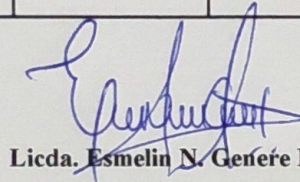 Licda. Esmelin N. Genere